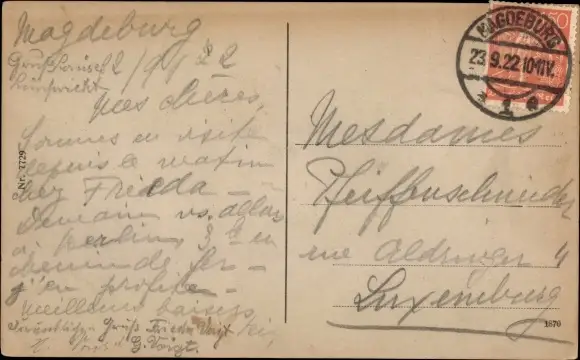 Magdeburg
22/9/22
Mes chères,
Sommes en visite
depuis ce matin
chez Frieda –
Demain ns. allons
à Berlin, 3 h en
chemin de fer –
j'en profite –
Meilleurs baisers
Freundlichen Gruß Frieda Voigt
G. Voigt.
Nr. 7729
MAGDEBURG
23.9.22.10-11V.
* 1 e
50
Mesdames
Pfeiffenschneider
rue Aldringen 4
Luxemburg
1870